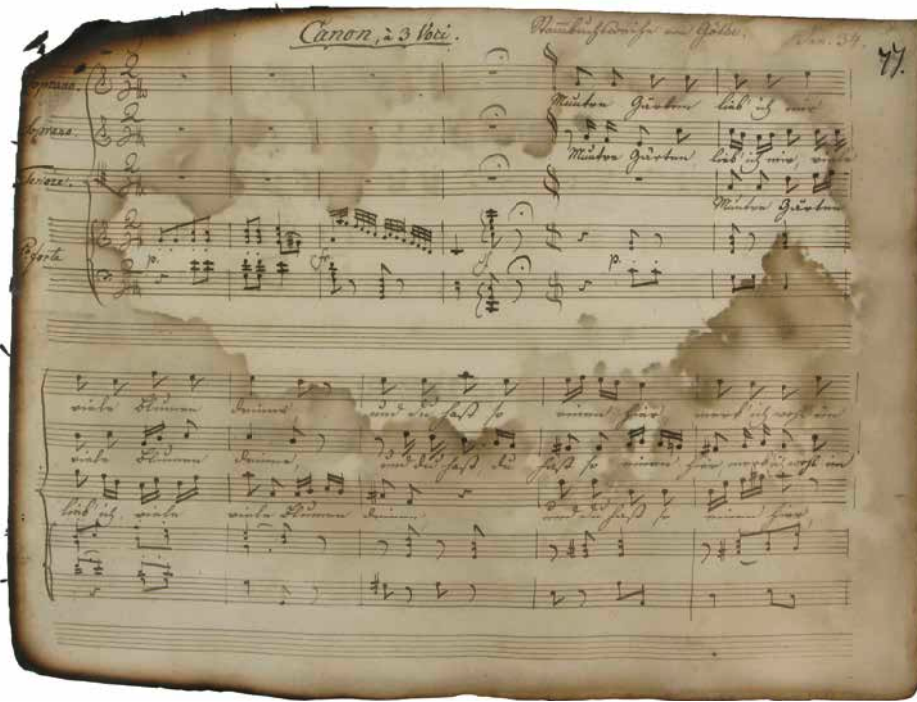 Canon, à 3 Voci.
Stammbuchsweihe von Göthe.
Jan. 34.
77.
Soprano.
Soprano.
Tenore.
Pforte
Muntre Gärten lieb ich mir
Muntre Gärten lieb ich mir, viele
Muntre Gärten
p.
fr
f
p.
viele Blumen drinne, und du hast so einen hier, merk ich wohl im
viele Blumen drinne, und du hast du hast so einen hier, merk ich wohl im
lieb ich, viele viele Blumen drinne und du hast so einen hier,